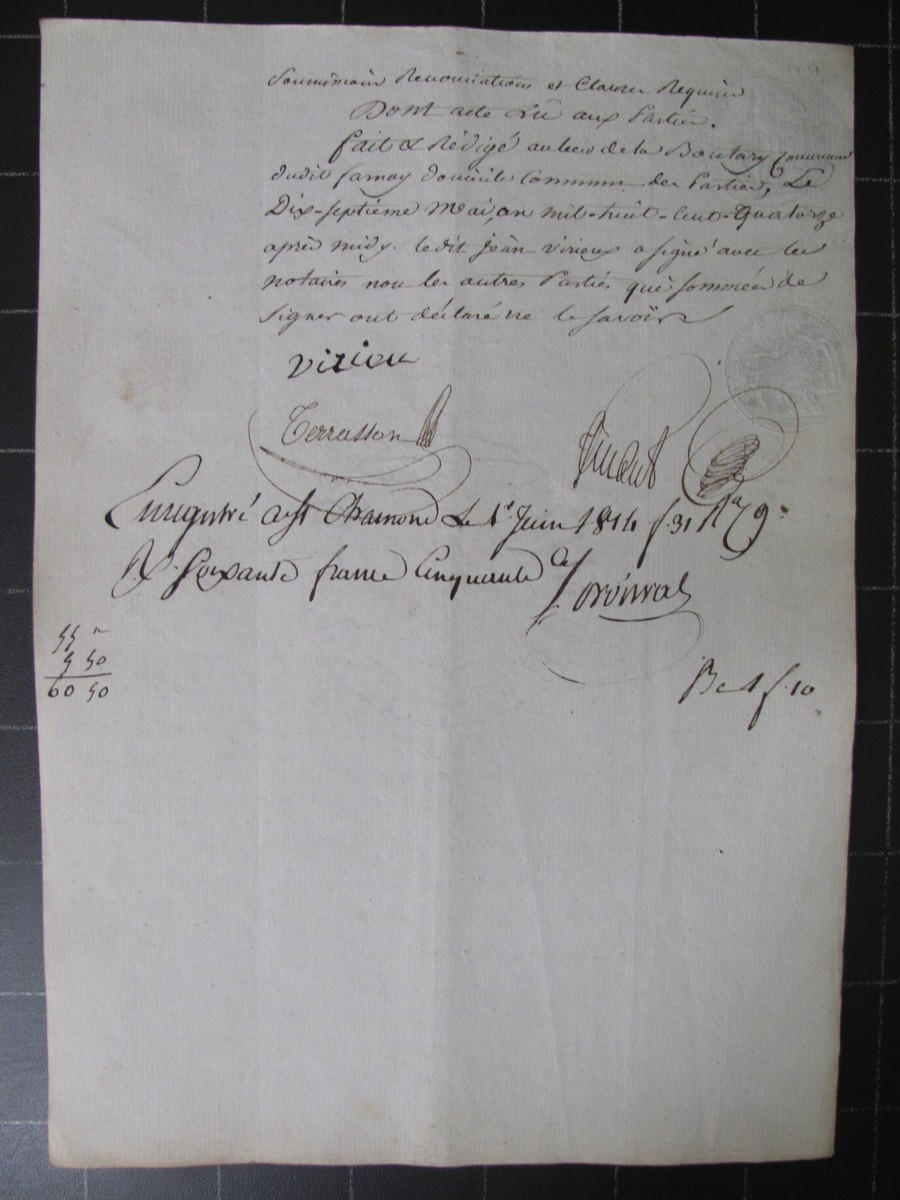 Soumissions Renonciations et Clauses Requises
Dont acte Lû aux Parties.
fait & Rédigé au lieu de la Boutary Commune
dudit farnay domicile Commun des Parties, Le
Dix-septième Mai, an mil-huit-Cent-Quatorze
après midy. ledit jean virieux a signé avec les
notaires non les autres Parties qui sommées de
signer ont déclaré ne le savoir
virieu
Terrasson
finant
Enregistré a St Chamond Le 1er Juin 1814 f. 31
R. Soixante francs Cinquante ces
55 "
5 50
60 50
f. 10